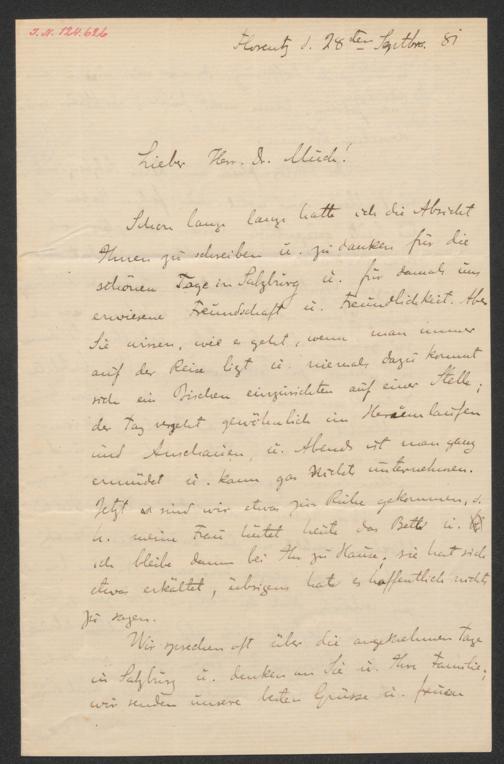 I.N. 124.626
Florentz d. 28ten Septbr. 81
Lieber Herr Dr. Much!
Schon lange lange hatte ich die Absicht
Ihnen zu schreiben u. zu danken für die
schönen Tage in Salzburg u. für damals uns
erwiesene Freundschaft u. Freundlichkeit. Aber
Sie wissen, wie es geht, wenn man immer
auf der Reise ligt u. niemals dazu kommt
sich ein Bischen einzurichten auf einer Stelle;
der Tag vergeht gewöhnlich im Herumlaufen
und Anschauen, u. Abends ist man ganz
ermüdet u. kann gar nichts unternehmen.
Jetzt sind wir etwas zur Ruhe gekommen, d.
h. meine Frau hütet heute das Bett u.
ich bleibe dann bei Ihr zu Hause; sie hat sich
etwas erkältet, übrigens hat es hoffentlich nichts
zu sagen.
Wir sprechen oft über die angenehmen Tage
in Salzburg u. denken an Sie u. Ihre Familie;
wir senden unsere besten Grüsse u. freuen